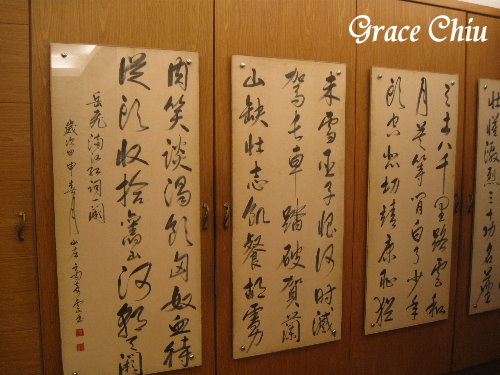 Grace Chiu
壯懷激烈三十功名塵
與土八千里路雲和
月莫等閒白了少年
頭空悲切靖康恥猶
未雪臣子恨何時滅
駕長車踏破賀蘭
山缺壯志飢餐胡虜
肉笑談渴飲匈奴血待
從頭收拾舊山河朝天闕
岳飛滿江紅詞一闋
歲次甲申春月